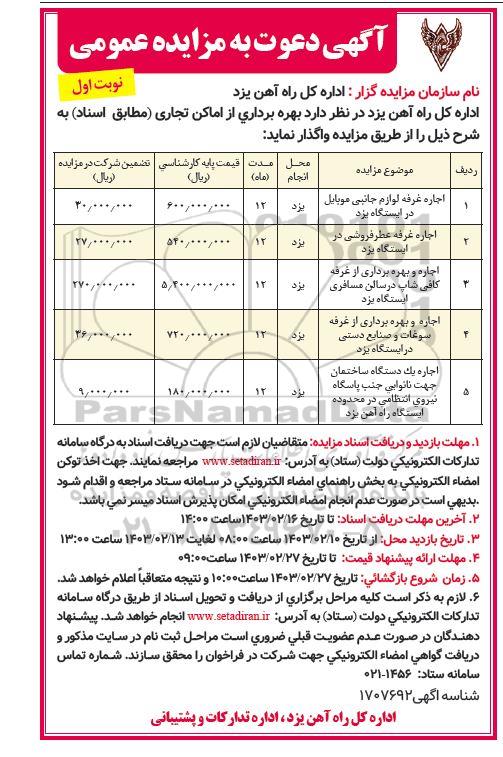 آگهی دعوت به مزایده عمومی
نوبت اول
نام سازمان مزایده گزار : اداره کل راه آهن یزد
اداره کل راه آهن یزد در نظر دارد بهره برداري از اماکن تجاری (مطابق اسناد) به
شرح ذیل را از طریق مزایده واگذار نماید:
ردیف | موضوع مزایده | محل انجام | مدت (ماه) | قیمت پایه کارشناسي (ریال) | تضمین شرکت در مزایده (ریال)
۱ | اجاره غرفه لوازم جانبی موبایل در ایستگاه یزد | یزد | ۱۲ | ۶۰۰٫۰۰۰٫۰۰۰ | ۳۰٫۰۰۰٫۰۰۰
۲ | اجاره غرفه عطرفروشی در ایستگاه یزد | یزد | ۱۲ | ۵۴۰٫۰۰۰٫۰۰۰ | ۲۷٫۰۰۰٫۰۰۰
۳ | اجاره و بهره برداری از غرفه کافی شاپ درسالن مسافری ایستگاه یزد | یزد | ۱۲ | ۵٫۴۰۰٫۰۰۰٫۰۰۰ | ۲۷۰٫۰۰۰٫۰۰۰
۴ | اجاره و بهره برداری از غرفه سوغات و صنایع دستی درایستگاه یزد | یزد | ۱۲ | ۷۲۰٫۰۰۰٫۰۰۰ | ۳۶٫۰۰۰٫۰۰۰
۵ | اجاره یك دستگاه ساختمان جهت نانوایی جنب پاسگاه نیروي انتظامي در محدوده ایستگاه راه آهن یزد | یزد | ۱۲ | ۱۸۰٫۰۰۰٫۰۰۰ | ۹٫۰۰۰٫۰۰۰
ParsNamadData
۱. مهلت بازدید و دریافت اسناد مزایده: متقاضیان لازم است جهت دریافت اسناد به درگاه سامانه
تدارکات الکترونیکي دولت (ستاد) به آدرس: www.setadiran.ir مراجعه نمایند. جهت اخذ توکن
امضاء الکترونیکي به بخش راهنماي امضاء الکترونیکي در سامانه ستاد مراجعه و اقدام شود
.بدیهي است در صورت عدم انجام امضاء الکترونیکي امکان پذیرش اسناد میسر نمي باشد.
۲. آخرین مهلت دریافت اسناد: تا تاریخ ۱۴۰۳/۰۲/۱۶ ساعت ۱۴:۰۰
۳. تاریخ بازدید محل: از تاریخ ۱۴۰۳/۰۲/۱۰ ساعت ۰۸:۰۰ لغایت ۱۴۰۳/۰۲/۱۳ ساعت ۱۳:۰۰
۴. مهلت ارائه پیشنهاد قیمت: تا تاریخ ۱۴۰۳/۰۲/۲۷ ساعت ۰۹:۰۰
۵. زمان شروع بازگشائي: تاریخ ۱۴۰۳/۰۲/۲۷ ساعت ۱۰:۰۰ و نتیجه متعاقباً اعلام خواهد شد.
۶. لازم به ذکر است کلیه مراحل برگزاري از دریافت و تحویل اسناد از طریق درگاه سامانه
تدارکات الکترونیکي دولت (ستاد) به آدرس: www.setadiran.ir انجام خواهد شد. پیشنهاد
دهندگان در صورت عدم عضویت قبلي ضروري است مراحل ثبت نام در سایت مذکور و
دریافت گواهي امضاء الکترونیکي جهت شرکت در فراخوان را محقق سازند. شماره تماس
سامانه ستاد: ۱۴۵۶-۰۲۱
شناسه اگهی ۱۷۰۷۶۹۲
اداره کل راه آهن یزد ، اداره تدارکات و پشتیبانی